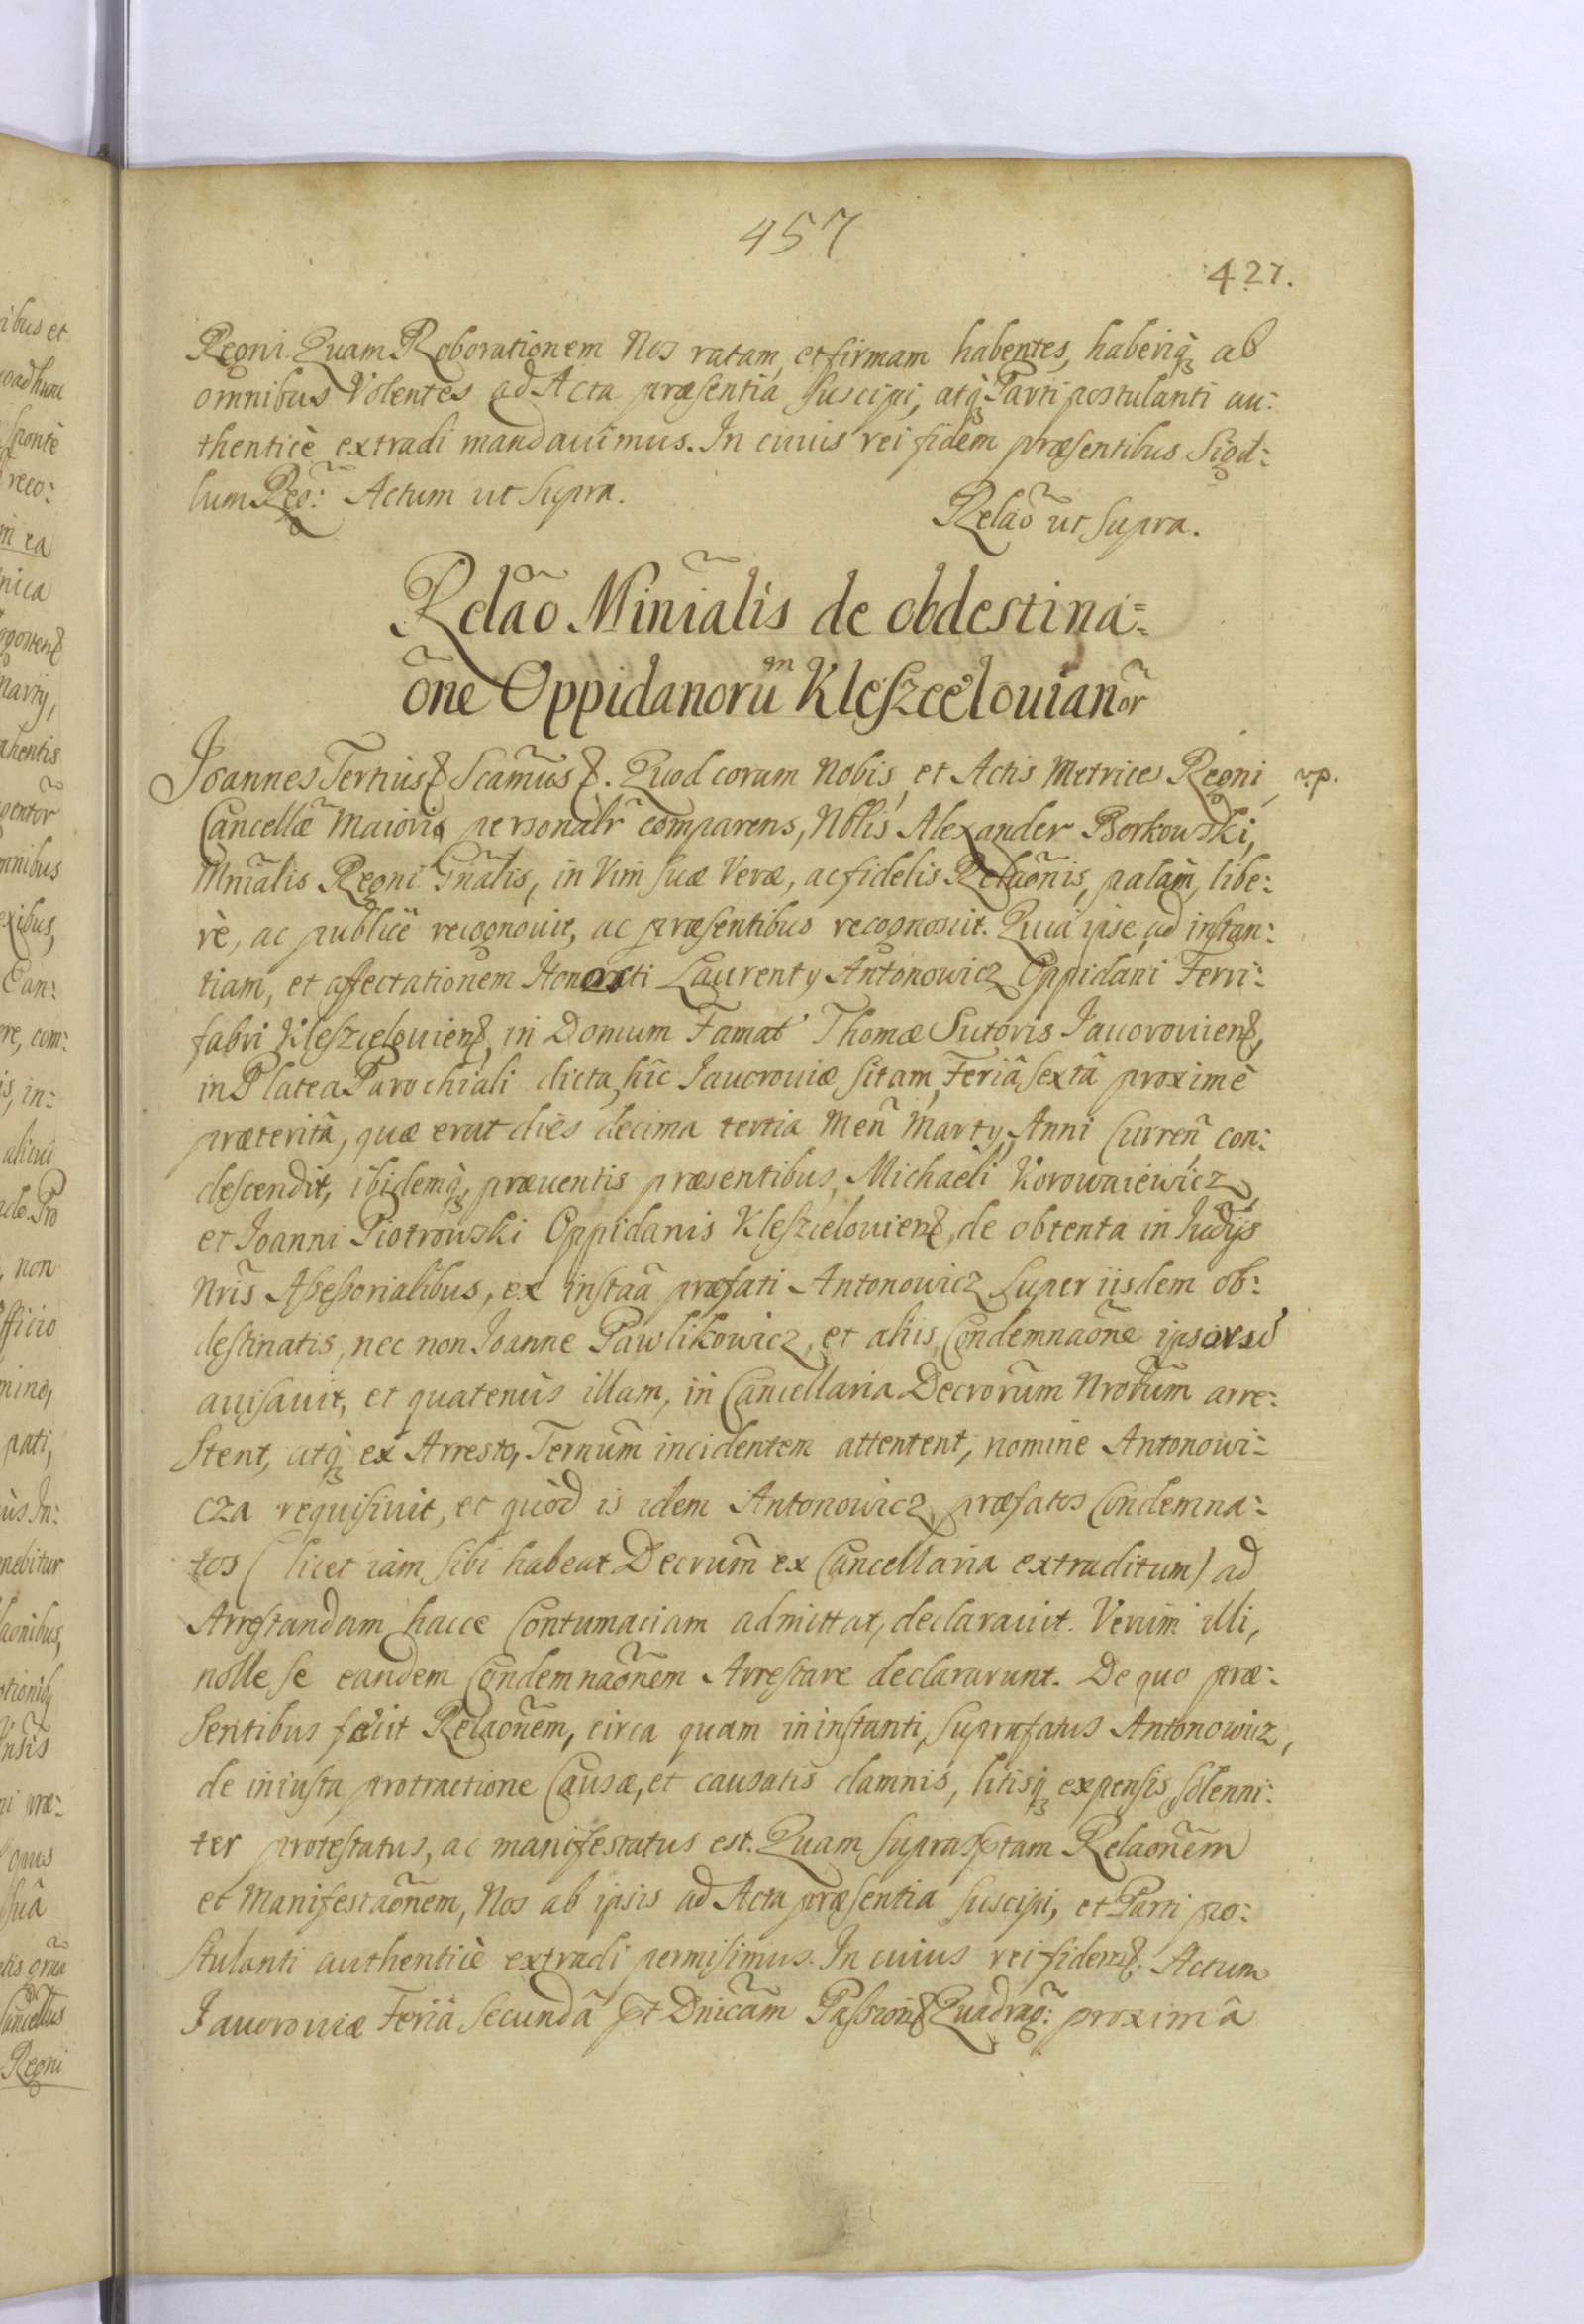 457
427.
Regni. Quam Roborationem Nos ratam, et firmam habentes, haberiq́ʒ ab
omnibus Volentes ad Acta præsentia suscipi, atq́ʒ Parti postulanti au:
thenticè extradi mandauimus. In cuius rei fidem præsentibus Sigil:
lum Reg̃: Actum ut supra.
Relaõ ut supra.
Relaõ Miniãlis de obdestina=
õne Oppidanorũm Kleszczelouianor̃
Joannes Tertius Scam̃us. Quod coram Nobis, et Actis Metrices Regni, v.p.
Cancellæ̃ Maioris personalr̃ comparens, Nblis Alexander Borkowski,
Mnĩalis Regni Gnãlis, in Vim suæ Veræ, ac fidelis Relaõnis, palàm, libe:
rè, ac publicè recognouit, ac præsentibus recognoscit. Quia ipse ad instan:
tiam, et affectationem Honesti Laurentÿ Antonowicz Oppidani Ferri:
fabri Kleszczelouien̄, in Domum Famat' Thomæ Sutoris Jauorouien̄,
in Platea Parochiali dicta, hîc Jauorouiæ sitam, Feriâ sextâ proximè
præteritâ, quæ erat dies decima tertia Men̄ Martÿ, Anni Curren̄ con:
descendit, ibidemq́ʒ, præuentis præsentibus, Michaëli Korowaiewicz,
et Joanni Piotrowski Oppidanis Kleszczelouien̄, de obtenta in Judÿs
Nrĩs Assessorialibus, ex instaã præfati Antonowicz super iisdem ob:
destinatis, nec non Joanne Pawlikowicz, et aliis, Condemnaõne ipsos
auisauit, et quatenùs illam, in Cancellaria Decrorũm Nrorũm arre:
stent, atq́ʒ ex Arresto, Ternum̃ incidentem attentent, nomine Antonowi=
cza requisiuit, et quòd is idem Antonowicz, præfatos Condemna:
tos ( licet iàm sibi habeat Decrum̃ ex Cancellaria extraditum) ad
Arrestandam hacce Contumaciam admittat, declarauit. Verùm illi,
nolle se eandem Condemnaõnem Arrestare declararunt. De quo præ:
sentibus fecit Relaõnem, circa quam in instanti, suprafatus Antonowicz,
de iniusta protractione Causæ, et causatis damnis, litisq́ʒ expensis, solenni:
ter protestatus, ac manifestatus est. Quam suprasptam Relaõnem
et Manifestaõnem, Nos ab ipsis ad Acta præsentia suscipi, et Parti po:
stulanti authenticè extradi permisimus. In cuius rei fidem. Actum
Jauorouiæ Feriâ secundâ pt Dnicãm Passion̄ Quadrag̃: proximâ